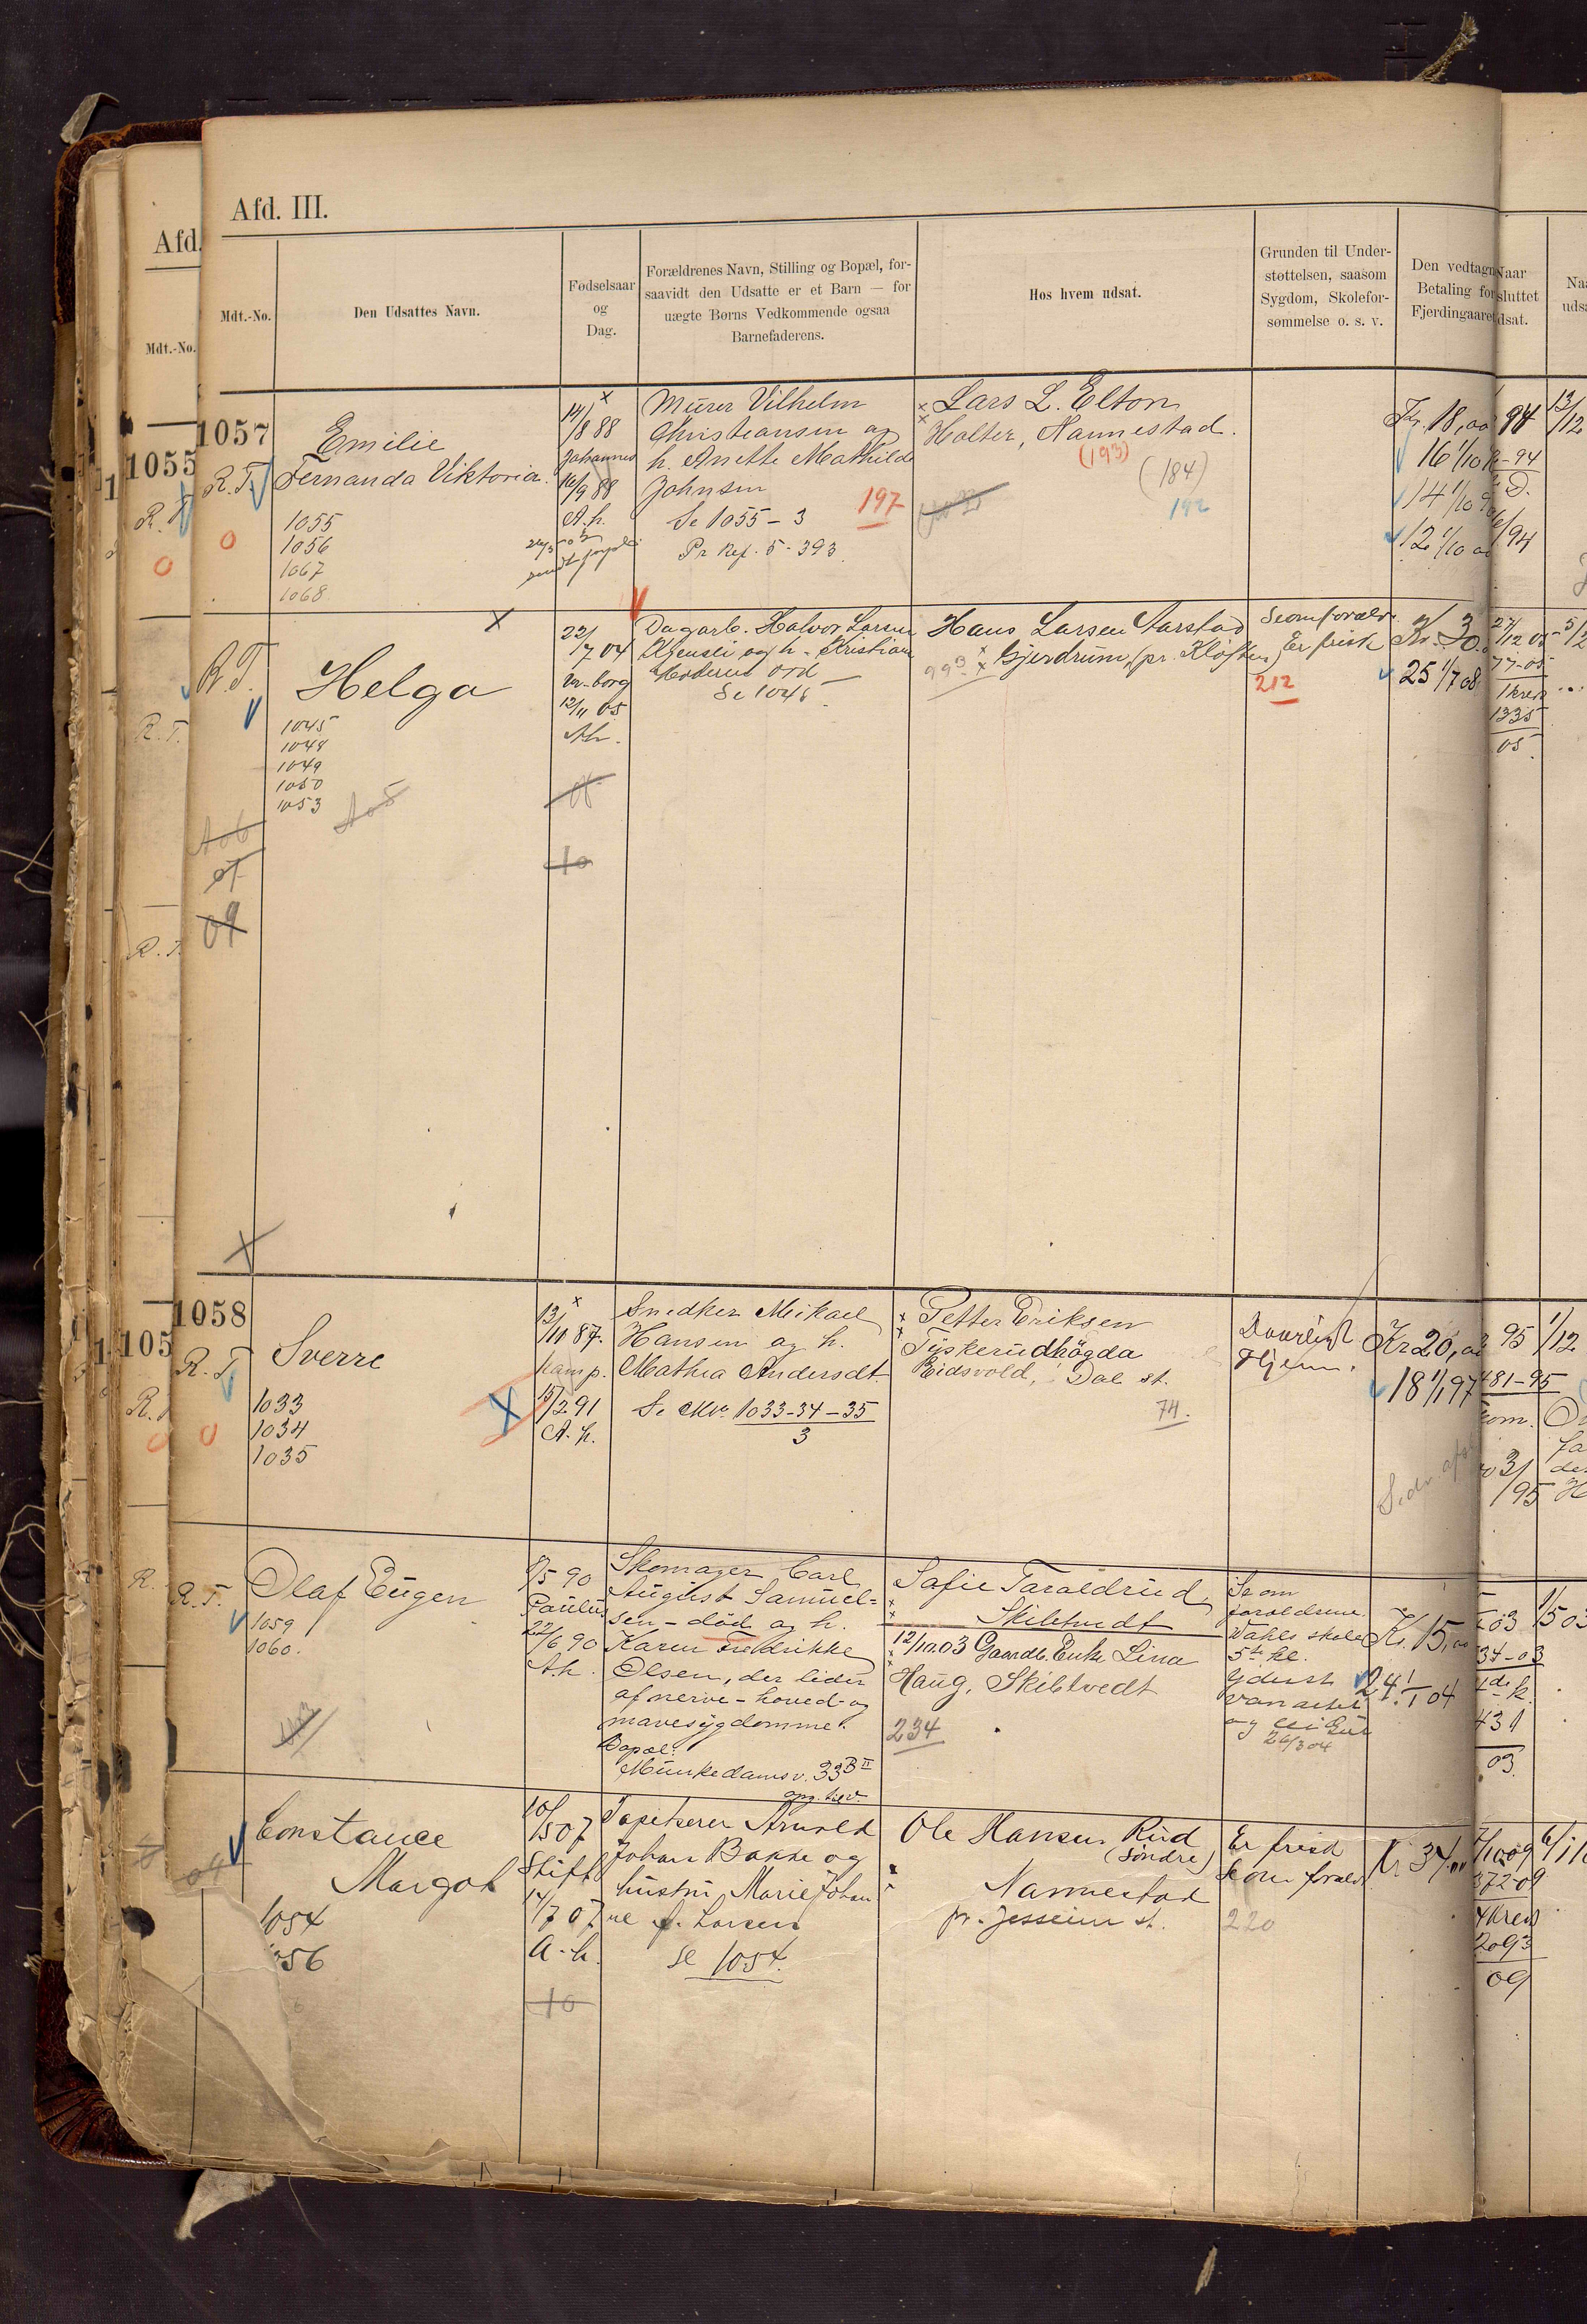 Afd. III.
Afd.
Mdt.-No.
Den Udsattes Navn.
Fødselsaar
og
Dag.
Forældrenes Navn, Stilling og Bopæl, for-
saavidt den Udsatte er et Barn — for
uægte Børns Vedkommende ogsaa
Barnefaderens.
Hos hvem udsat.
Grunden til Under-
støttelsen, saasom
Sygdom, Skolefor-
sømmelse o. s. v.
Den vedtagn
Betaling for
Fjerdingaaret
Naar
sluttet
dsat.
Na
uds
Mdt.-No.
1055
1057
R.T.
Emilie
Fernanda Viktoria
1055
1056
1067
1068
14/8 88
Johannes
16/9 88
A.h.
Murer Vilhelm
Christiansen og
h. Anette Mathilde
Johnsen
Se 1055-3
197
Pr Ref. 5-393.
Lars L. Elton
Holter, Nannestad.
(193)
(184)
192
Kr. 18,00
16 1/10
14 1/10
12 1/10
94
13/12
-94
/94
R.T.
Helga
1045
1048
1049
1050
1053
A05
A06
07
09
22/7 04
Vor-borg
12/11 05
Ah.
08
10
Dagarb. Halvor Larsen
og h. Kristiane
Moderen død
Se 1045
Hans Larsen Aarstad
Gjerdrum, (pr. Kløften)
993
212
Se om foræld.
Er frisk
Kr. 30.
25 1/7 08
27/12 05
77-05
1 kreds
1335
05
5/2
105
1058
R.T.
Sverre
1033
1034
1035
13/11 87.
hamp.
15/2 91
A.h.
Snedker Mikael
Hansen og h.
Mathea Andersdt.
Se Mdt. 1033-34-35
3
Petter Eriksen
Tyskerudhögda
Eidsvold, Dal st.
74.
Daarligt
Hjem.
Kr 20,00
18 1/1 97
95
481-95
1/12
/95
R.T.
Olaf Eugen
1059
1060.
8/5 90
Paulus
22/6 90
Ah.
Skomager Carl
August Samuel-
sen - død og h.
Karen Fredrikke
Olsen, der lider
af nerve- hoved- og
mavesygdomme.
Bopæl:
Munkedamsv. 33 B II
opg. tilv.
Sofie Taraldrud,
Skibtvedt
12/10.03 Gaardb. Enke Lina
Haug, Skibtvedt
234
Se om
forældrene.
Vahls skole
5te kl.
yderst
vanartet
26/3 04
Kr. 15,00
24 1/1 04
03
37-03
431
03.
1/5 03
Constance
Margot
1054
056
10/5 07
Skift
14/7 07
A.h.
10
Tapetserer Arnold
Johan Bakke og
hustru Marie Johan
ne f. Larsen
Se 1054.
Ole Hansen Rud
(Søndre)
Nannestad
pr. Jessheim st.
Er frisk
Se om foræld.
220
Kr 34,00
/10 09
372-09
4 Kreds
2093
09